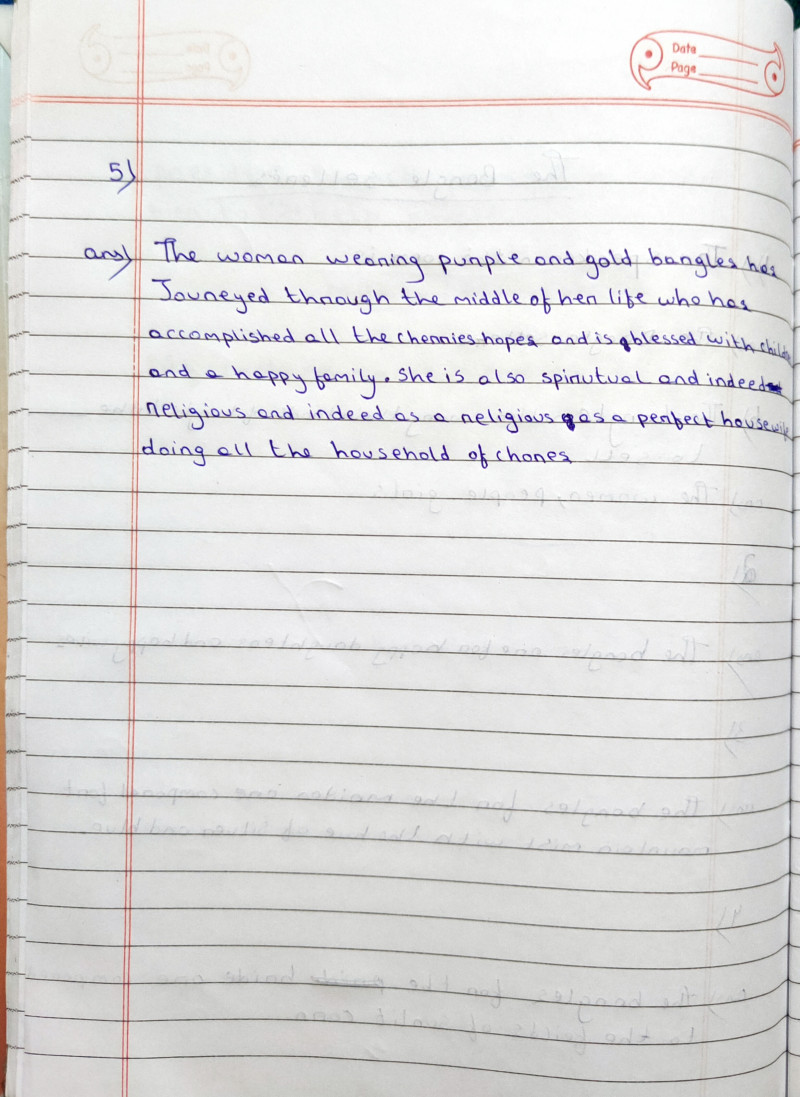 Date
Page
5)
ans) The woman wearing purple and gold bangles has
Jouneyed through the middle of her life who has
accomplished all the cherries hopes and is blessed with
and a happy family. She is also spirutual and indeed
religious and indeed as a religious as a perfect housewife
doing all the household of chores